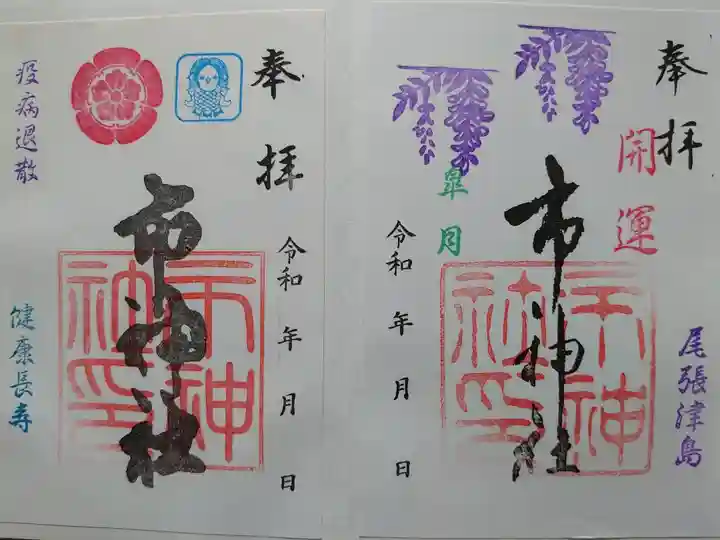 奉拝
疫病退散
市神社
市神社印
令和 年 月 日
健康長寿
奉拝
開運
皐月
市神社
市神社印
令和 年 月 日
尾張津島